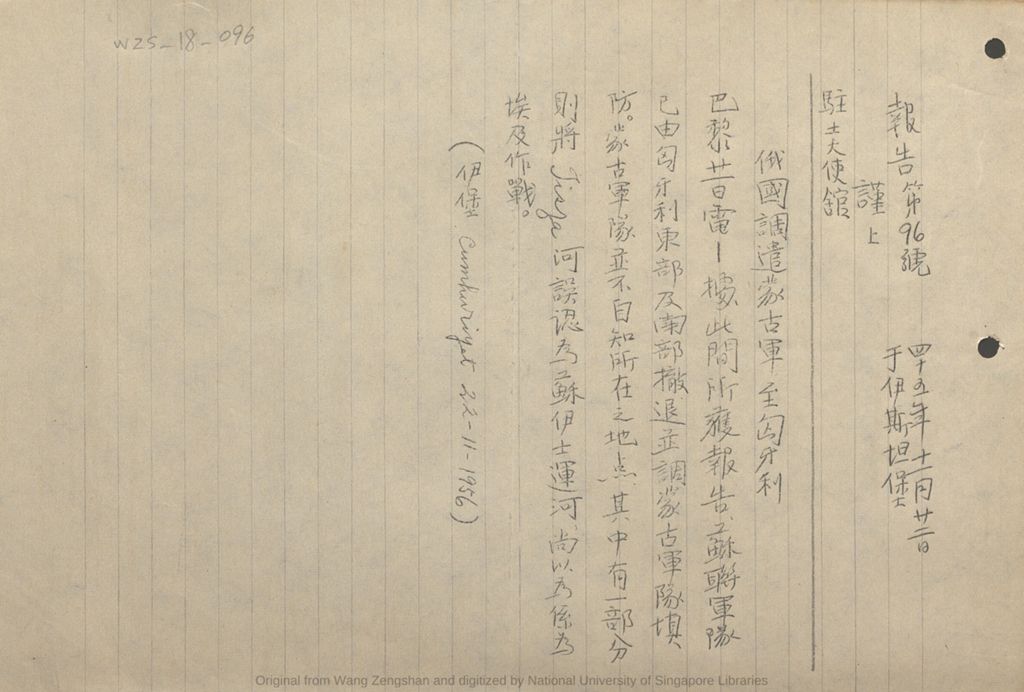 WZS-18-096
報告第96號
四十五年十一月廿二日
于伊斯坦堡
謹上
駐土大使舘
俄國調遣蒙古軍至匈牙利
巴黎廿一日電—據此間所獲報告、蘇聯軍隊
已由匈牙利東部及南部撤退並調蒙古軍隊填
防。蒙古軍隊並不自知所在之地点、其中有一部分
則將 Tisza 河誤認為蘇伊士運河、尚以為係為
埃及作戰。
(伊堡 Cumhuriyet 22-11-1956)
Original from Wang Zengshan and digitized by National University of Singapore Libraries